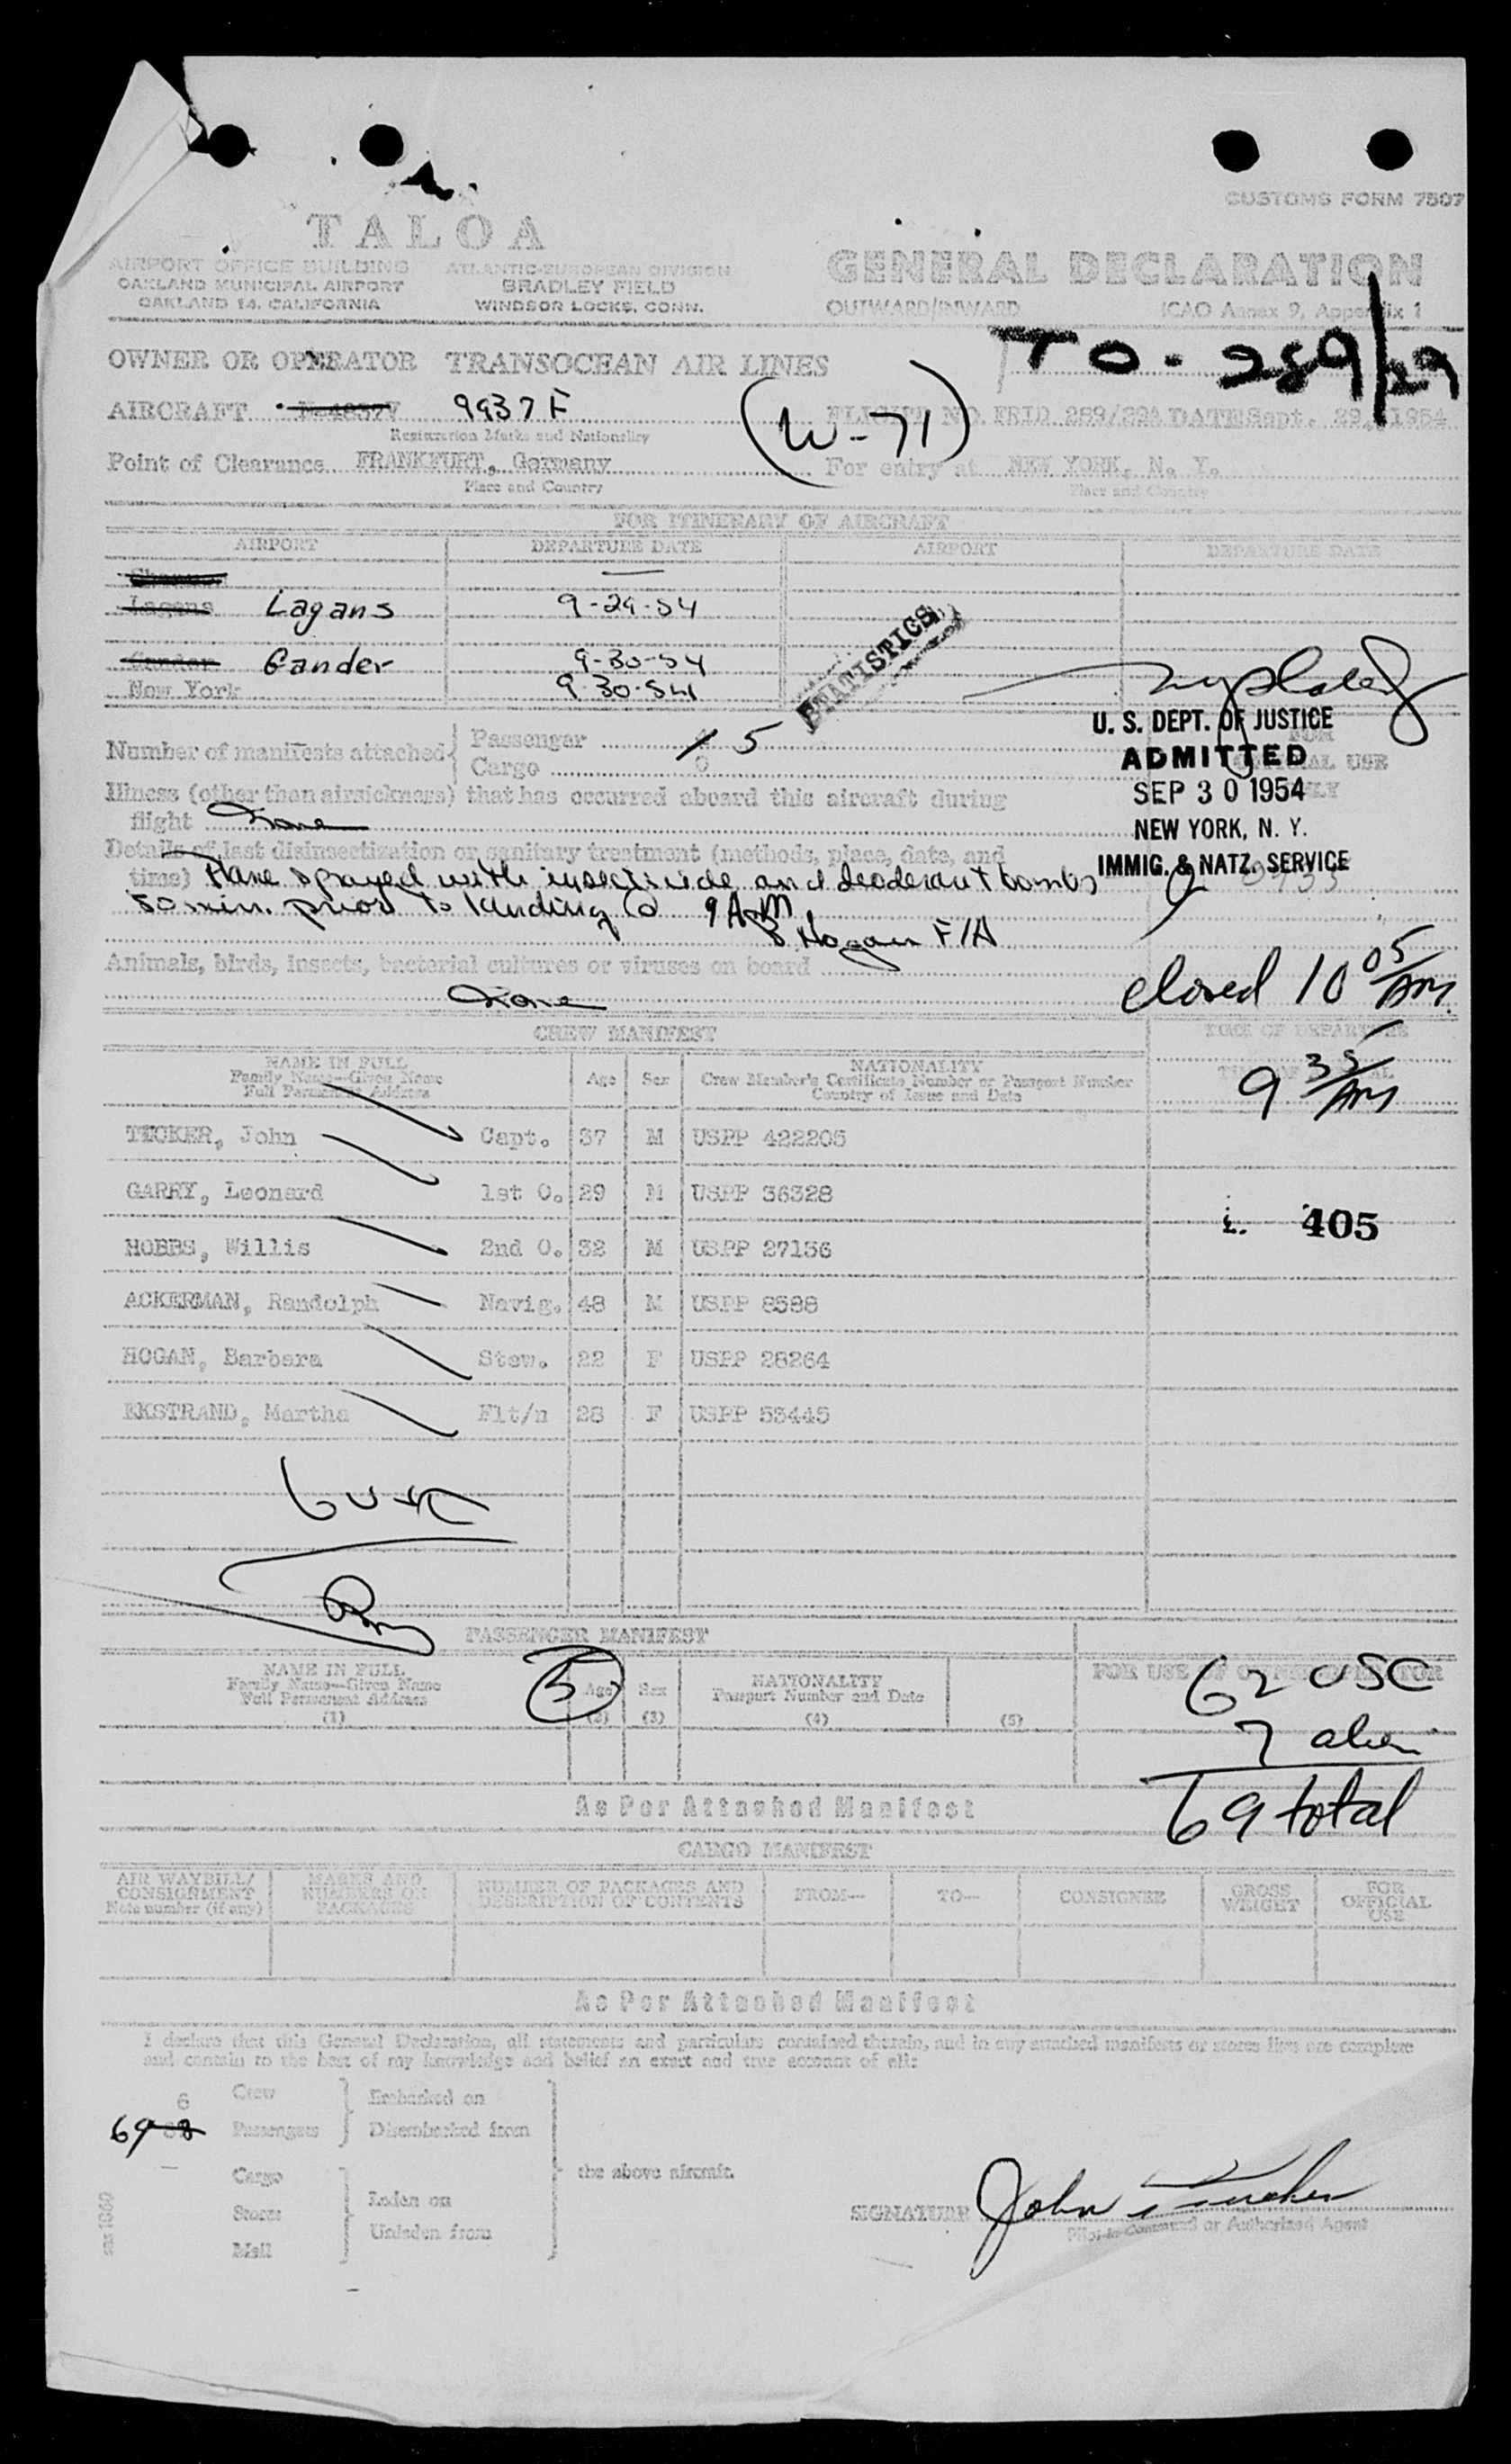 CUSTOMS FORM 7507
TALOA
AIRPORT OFFICE BUILDING
OAKLAND MUNICIPAL AIRPORT
OAKLAND 14, CALIFORNIA
ATLANTIC-EUROPEAN DIVISION
BRADLEY FIELD
WINDSOR LOCKS, CONN.
GENERAL DECLARATION
OUTWARD/INWARD ICAO Annex 9, Appendix 1
TO-289/29
OWNER OR OPERATOR TRANSOCEAN AIR LINES
AIRCRAFT 9937F (W-71) FLIGHT NO. FRID 289/29A DATE Sept. 29, 1954
Registration Marks and Nationality
Point of Clearance FRANKFURT, Germany For entry at NEW YORK, N. Y.
Place and Country Place and Country
FOR ITINERARY OF AIRCRAFT
AIRPORT DEPARTURE DATE AIRPORT DEPARTURE DATE
Shannon —
Lagens Lagans 9-29-54
Gander Gander 9-30-54
New York 9-30-54
STATISTICS
Number of manifests attached Passenger 5
Cargo 0
U. S. DEPT. OF JUSTICE
ADMITTED
SEP 30 1954
NEW YORK, N. Y.
IMMIG. & NATZ. SERVICE
FOR
OFFICIAL USE
ONLY
Illness (other than airsickness) that has occurred aboard this aircraft during
flight None
Details of last disinsectization or sanitary treatment (methods, place, date, and
time) Plane sprayed with insecticide and deoderant bombs
50 min. prior to landing @ 9 AM
B Hogan F/A
Animals, birds, insects, bacterial cultures or viruses on board
None
closed 10 05/AM
CREW MANIFEST TIME OF DEPARTURE
NAME IN FULL
Family Name—Given Name
Full Permanent Address
Age Sex
NATIONALITY
Crew Member's Certificate Number or Passport Number
Country of Issue and Date
9 35/AM
TUCKER, John Capt. 37 M USPP 422205
GARRY, Leonard 1st O. 29 M USPP 36328
HOBBS, Willis 2nd O. 32 M USPP 27136
ACKERMAN, Randolph Navig. 48 M USPP 8588
HOGAN, Barbara Stew. 22 F USPP 28264
EKSTRAND, Martha Flt/n 28 F USPP 53445
405
PASSENGER MANIFEST
NAME IN FULL
Family Name—Given Name
Full Permanent Address
(1)
5
Age
(2)
Sex
(3)
NATIONALITY
Passport Number and Date
(4) (5)
62 USC
7 alien
69 total
As Per Attached Manifest
CARGO MANIFEST
AIR WAYBILL/
CONSIGNMENT
Note number (if any)
MARKS AND
NUMBERS ON
PACKAGES
NUMBER OF PACKAGES AND
DESCRIPTION OF CONTENTS
FROM— TO— CONSIGNEE
GROSS
WEIGHT
FOR
OFFICIAL
USE
As Per Attached Manifest
I declare that this General Declaration, all statements and particulars contained therein, and in any attached manifests or stores lists are complete
and contain to the best of my knowledge and belief an exact and true account of all:
6 Crew Embarked on
69 Passengers Disembarked from
— Cargo the above aircraft.
Stores Laden on
Mail Unladen from
SIGNATURE John Tucker
Pilot-in-Command or Authorized Agent